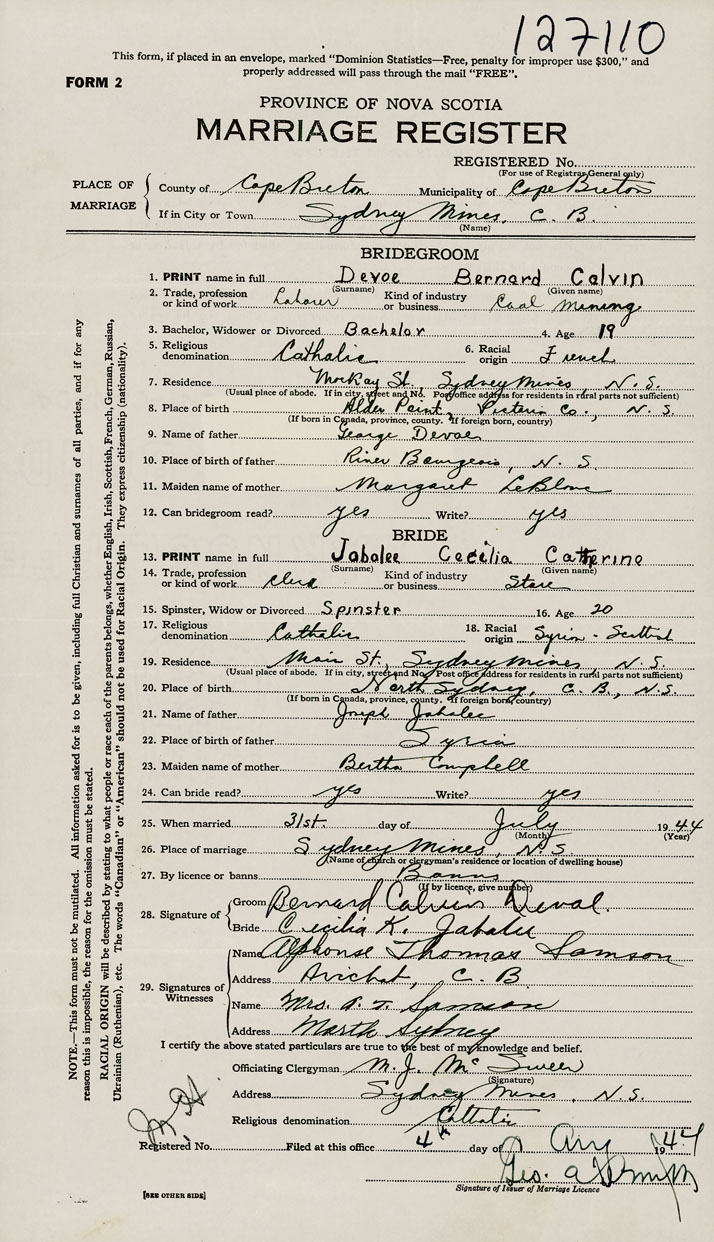 127110
This form, if placed in an envelope, marked "Dominion Statistics—Free, penalty for improper use $300," and
properly addressed will pass through the mail "FREE".
FORM 2
PROVINCE OF NOVA SCOTIA
MARRIAGE REGISTER
REGISTERED No.
(For use of Registrar General only)
PLACE OF MARRIAGE
County of Cape Breton Municipality of Cape Breton
If in City or Town Sydney Mines, C. B.
(Name)
BRIDEGROOM
1. PRINT name in full Devoe Bernard Calvin
(Surname) (Given name)
2. Trade, profession or kind of work Laborer Kind of industry or business Coal Mining
3. Bachelor, Widower or Divorced Bachelor 4. Age 19
5. Religious denomination Catholic 6. Racial origin French
7. Residence MacKay St., Sydney Mines, N. S.
(Usual place of abode. If in city, street and No. Post office address for residents in rural parts not sufficient)
8. Place of birth Alder Point, Victoria Co., N. S.
(If born in Canada, province, county. If foreign born, country)
9. Name of father George Devoe
10. Place of birth of father River Bourgeois, N. S.
11. Maiden name of mother Margaret LeBlanc
12. Can bridegroom read? yes Write? yes
BRIDE
13. PRINT name in full Jabalee Cecilia Catherine
(Surname) (Given name)
14. Trade, profession or kind of work Clerk Kind of industry or business Store
15. Spinster, Widow or Divorced Spinster 16. Age 20
17. Religious denomination Catholic 18. Racial origin Syrian - Scottish
19. Residence Main St., Sydney Mines, N. S.
(Usual place of abode. If in city, street and No. Post office address for residents in rural parts not sufficient)
20. Place of birth North Sydney, C. B., N.S.
(If born in Canada, province, county. If foreign born, country)
21. Name of father Joseph Jabalee
22. Place of birth of father Syria
23. Maiden name of mother Bertha Campbell
24. Can bride read? yes Write? yes
25. When married 31st. day of July 1944
(Month) (Year)
26. Place of marriage Sydney Mines, N. S.
(Name of church or clergyman's residence or location of dwelling house)
27. By licence or banns Banns
(If by licence, give number)
28. Signature of
Groom Bernard Calvin
Bride Cecilia K. Jabalee
29. Signatures of Witnesses
Name Alphonse Thomas Samson
Address Arichat, C. B.
Name Mrs. A. T. Samson
Address North Sydney
I certify the above stated particulars are true to the best of my knowledge and belief.
Officiating Clergyman M. J. McSween
(Signature)
Address Sydney Mines, N. S.
Religious denomination Catholic
Registered No. Filed at this office 4th day of Aug 1944
Signature of Issuer of Marriage Licence
[SEE OTHER SIDE]
NOTE.—This form must not be mutilated. All information asked for is to be given, including full Christian and surnames of all parties, and if for any
reason this is impossible, the reason for the omission must be stated.
RACIAL ORIGIN will be described by stating to what people or race each of the parents belongs, whether English, Irish, Scottish, French, German, Russian,
Ukrainian (Ruthenian), etc. The words "Canadian" or "American" should not be used for Racial Origin. They express citizenship (nationality).